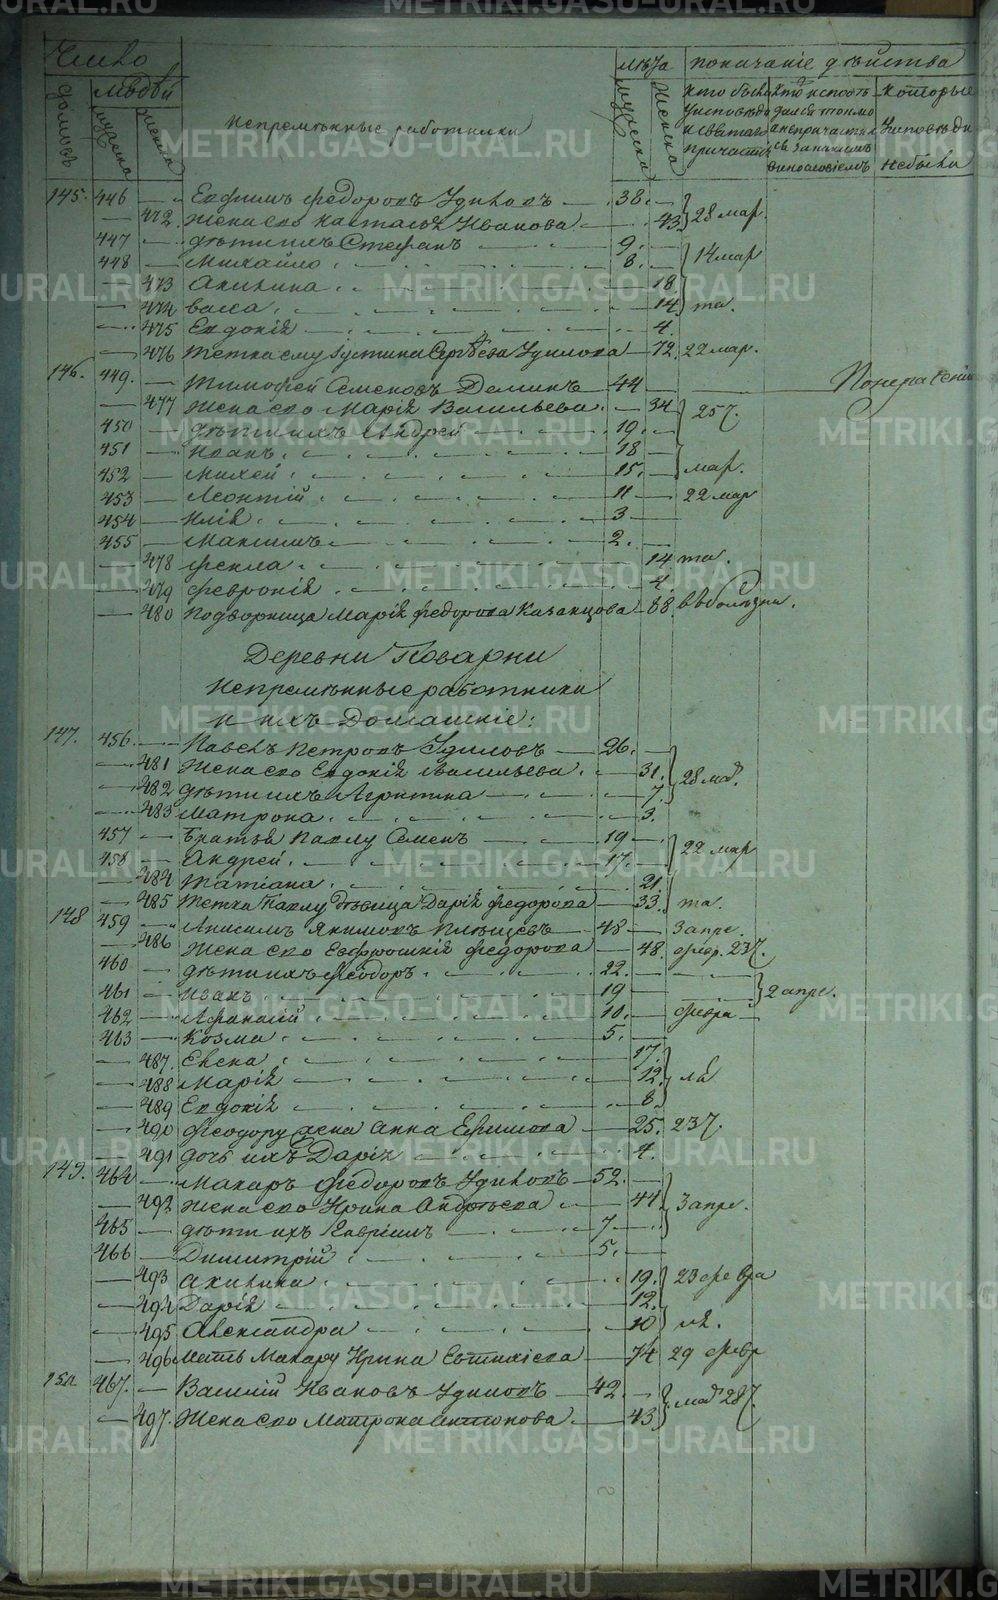 Число
домовъ
людей
мужска
женска
Непремѣнные работники
лѣта
мужска
женска
показаніе дѣйства
кто былъ
у исповѣди
и святаго
причастія
которые
у исповѣди
не были
145. 446 — Евфимъ Федоровъ — 38. —
— 472. жена его Настасья Иванова — 43. } 28 мар.
447 — дѣти ихъ Стефанъ — 9. —
448 — Михайло — 8. — } 14 мар
— 473 Акилина — 18.
— 474 Васса — 14 та.
— 475 Евдокія — 4.
— 476 тетка ему Устина Сергѣева — 72. 22 мар.
146. 449. — Тимофей Семеновъ — 44 —
— 477 жена его Марія Васильева — 34
450 — дѣти ихъ Андрей — 19. — } 25
451 — Иванъ — 18 —
452 — Михей — 15. — мар.
453 — Леонтій — 11 — 22 мар
454 — Илія — 3 —
455 — Максимъ — 2. —
— 478 Фекла — 14 та.
— 479 Февронія — 4.
— 480 Подворница Марія Федорова Казанцова — 88. въ болѣзни.
Деревни Поварни
Непремѣнные работники
и ихъ Домашніе:
147. 456. — Павелъ Петровъ — 26. —
— 481 жена его Евдокія Васильева — 31.
— 482 дѣти ихъ Агрипина — 7. } 28 мар.
— 483 Матрона — 3.
457 — Братья Павлу Семенъ — 19 —
458 — Андрей — 17. — } 22 мар
— 484 Татіана — 21.
— 485 тетка Павлу дѣвица Дарія Федорова — 33. та.
148 459 — Анисимъ Якимовъ — 48 — 3 апре.
— 486 жена его Евфросинія Федорова — 48. февр. 23
460 — дѣти ихъ Феодоръ — 22. —
461 — Иванъ — 19 — } 2 апре.
462 — Афанасій — 10. — февра —
463 — Козма — 5. —
— 487. Елена — 17.
— 488 Марія — 12.
— 489 Евдокія — 8.
— 490 Феодору жена Анна Ефимова — 25. 23
— 491 дочь ихъ Дарія — 4.
149. 464 — Макаръ Федоровъ — 52. —
— 492 жена его Ирина Андреева — 44 } 3 апре.
465 — дѣти ихъ Гавріилъ — 7 —
466 — Димитрій — 5. —
— 493 Акилина — 19. } 23 февра
— 494 Дарія — 12.
— 495 Александра — 10
— 496 мать Макару Ирина Евтихіева — 74 29 февр
150. 467. — Василій Ивановъ — 42. —
— 497. жена его Матрона Антонова — 43 } мар 28